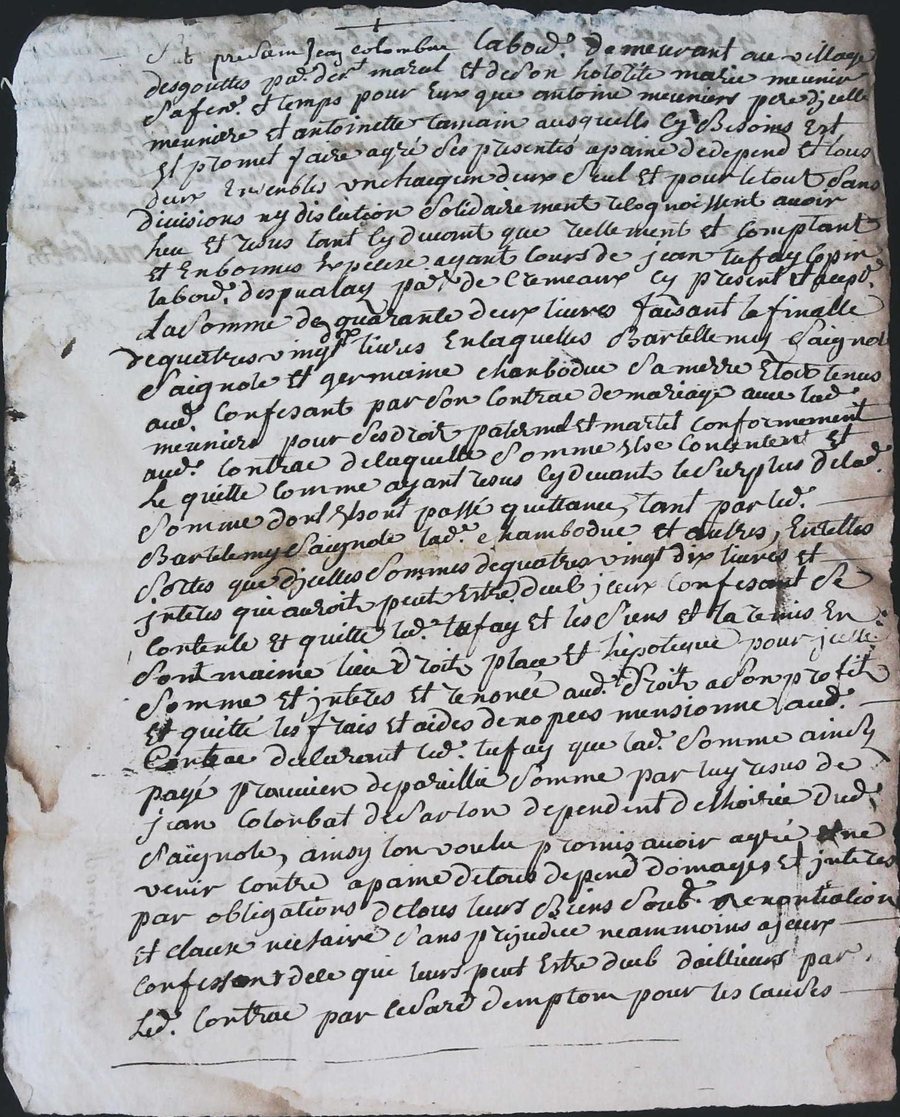 Fut presein Jean Colombae labou.r demeurant au village
desgouttes par. de st marcel et de son hotolite marie meunier
sa fem. et temps pour eux que antoine meuniers pere djcelle
meuniere et antoinette tamain ausquells cy Besoims Est
Et promet faire agré ses presentes a paine dedepend Et tous
deux Ensembles un chacqun deux seul Et pour le tout sans
divisions ny discution solidairement recognoissent avoir
heu Et resus tant cy devant que reellement et comptant
Et En bonnes Expeces ayant cours de jean tufay
labou.r par.e de Cremeaux cy present et accept.
La somme de quarante deux livres faisant la finalle
de quatres vingt dix livres Enlaquelles Bartellemy Saignol
Saignole Et germaine Chambodue sa merre Etoit tenus
aud. confesant par son contrac de mariage avec lad.
meuniere pour ses droit paternel et martel conformement
aud. contrac de laquelle somme ils se contentent Et
Le quitte comme ayant resus cy devant le surplus delad.
Somme dont ils ont passé quittance, tant par led.
Bartelemy Saignole lad. Chambodue Et autres, En telles
Sortes que djcelles sommes de quatres vingt dix livres et
jnteres qui auroit peut Estre deub jceux confesant se
Contente Et quitte led. tufay Et les siens et la remis En
Sont maime lieu Droit place Et hipoteque pour jcelle
Somme et jnteres Et renoncé aud. Droit a son profit
Et quitté les frais Et aides de nopces mensionne aud.
Contrac declarant led. tufay que lad. Somme ainsy
payé provien de pareillie Somme par luy resus de
jean Colonbat de Sarlon dependent de lhoirée dud.
Saignole, ainsy lon voulu promis avoir agré Et ne
venir contre a paine de tous depend domages Et jnteres
par obligations de tous leurs Biens soub. Renontiation
Et clause nesesaire sans prejudice neammoins a jceux
confessents de ce que leurs peut Estre deub dailleurs par
Led. Contrac par Cesard demptom pour les causes